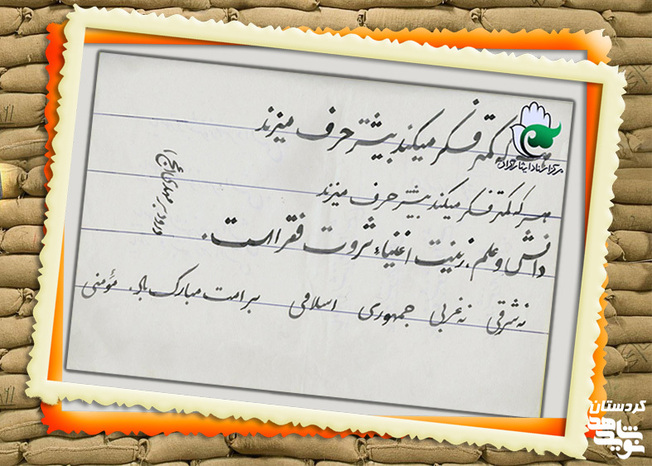 هر که کمتر فکر میکند بیشتر حرف میزند
مرکز اسناد ایثارگران
هر که کمتر فکر میکند بیشتر حرف میزند
دانش و علم، زینت اغنیاء ثروت فقرا است.
نه شرقی نه غربی جمهوری اسلامی بر امت مبارک باد. مؤمنی
درود بر
کردستان
نوید شاهد